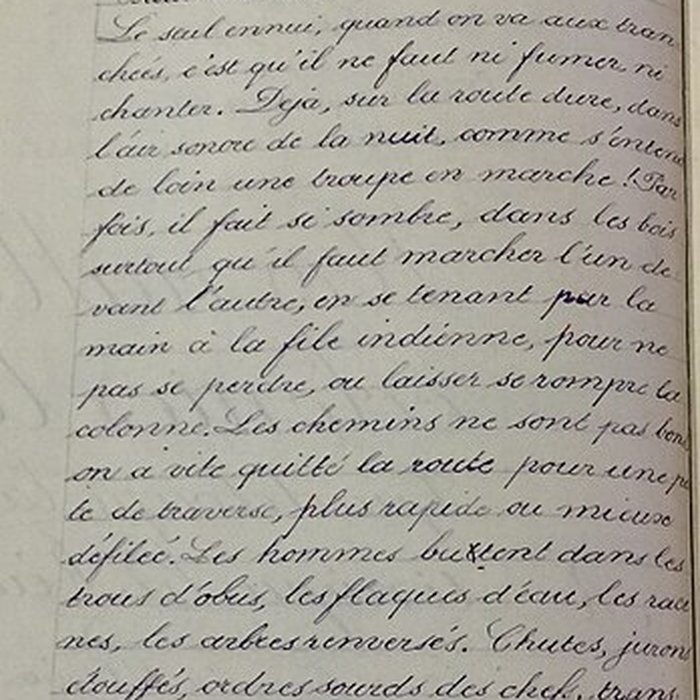 Le seul ennui, quand on va aux tran
chées, c'est qu'il ne faut ni fumer ni
chanter. Déjà, sur la route dure, dans
l'air sonore de la nuit, comme s'entend
de loin une troupe en marche ! Par
fois, il fait si sombre, dans les bois
surtout qu'il faut marcher l'un de
vant l'autre, en se tenant par la
main à la file indienne, pour ne
pas se perdre, ou laisser se rompre la
colonne. Les chemins ne sont pas bons
on a vite quitté la route pour une pis
te de traverse, plus rapide ou mieux
défilée. Les hommes buttent dans les
trous d'obus, les flaques d'eau, les raci
nes, les arbres renversés. Chutes, jurons
étouffés, ordres sourds des chefs, trans